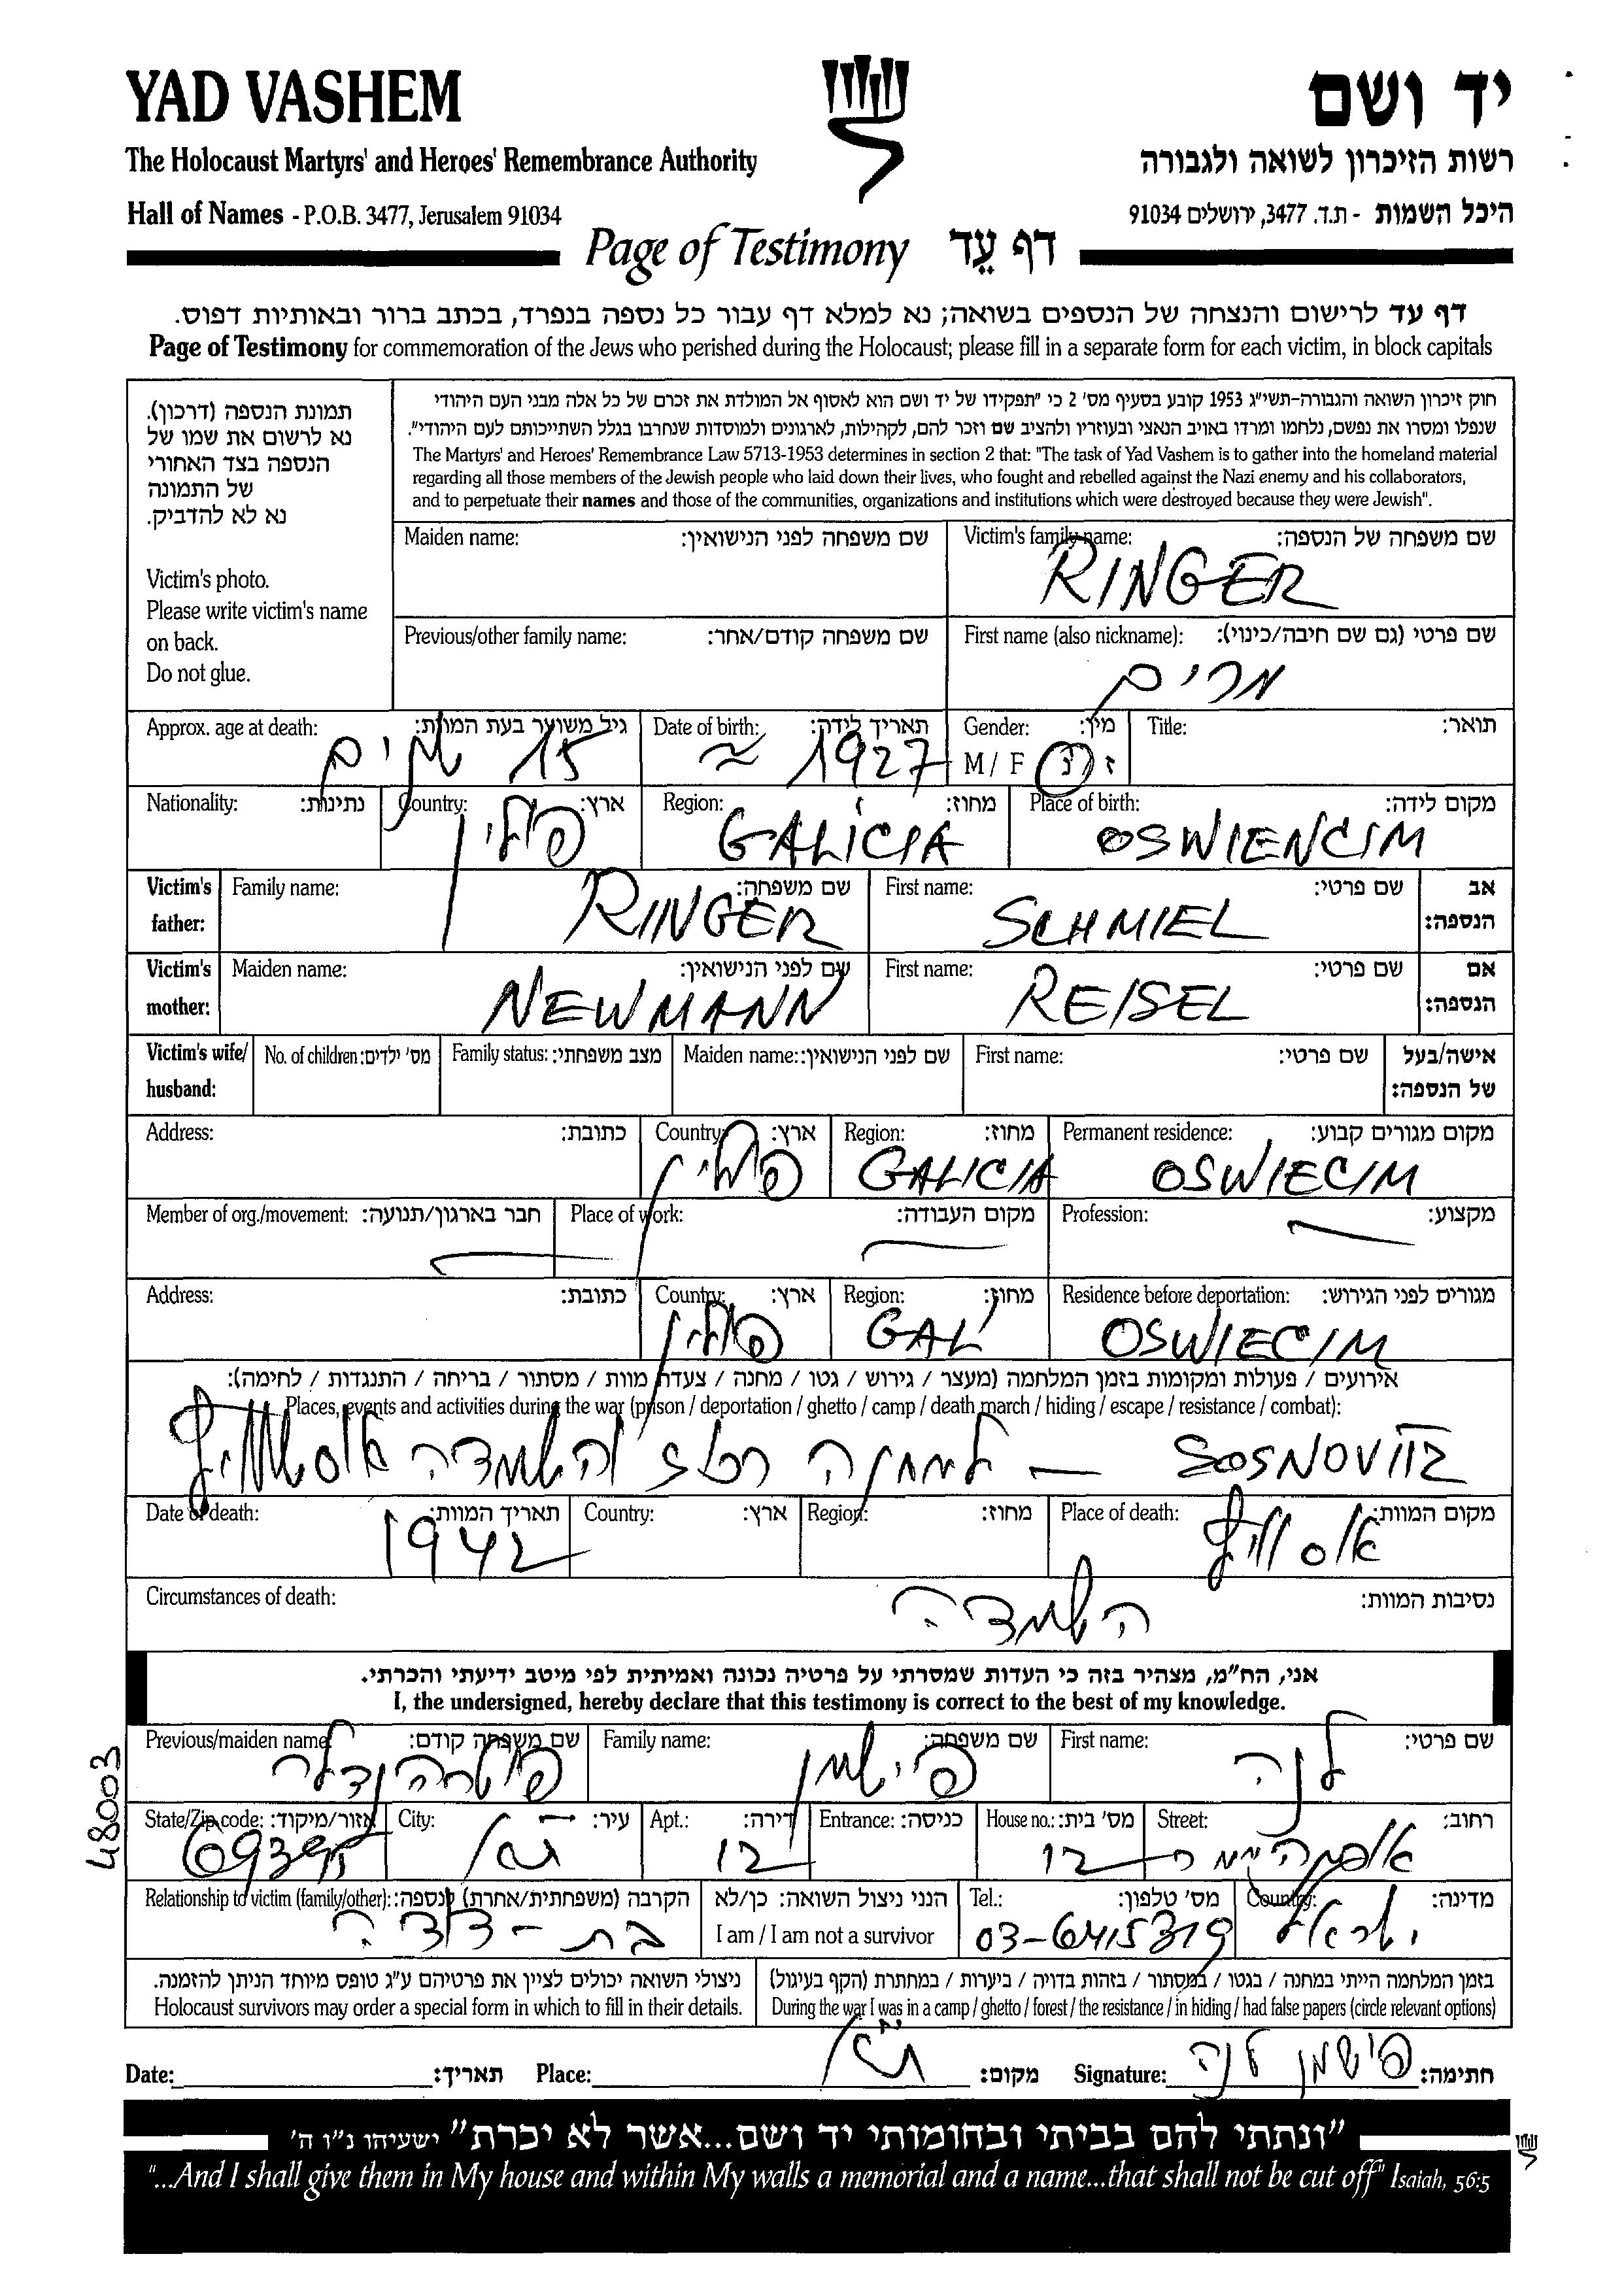 YAD VASHEM
יד ושם
The Holocaust Martyrs' and Heroes' Remembrance Authority
רשות הזיכרון לשואה ולגבורה
Hall of Names - P.O.B. 3477, Jerusalem 91034
היכל השמות - ת.ד. 3477, ירושלים 91034
Page of Testimony דף עֵד
דף עד לרישום והנצחה של הנספים בשואה; נא למלא דף עבור כל נספה בנפרד, בכתב ברור ובאותיות דפוס.
Page of Testimony for commemoration of the Jews who perished during the Holocaust; please fill in a separate form for each victim, in block capitals
תמונת הנספה (דרכון).
נא לרשום את שמו של
הנספה בצד האחורי
של התמונה
נא לא להדביק.
Victim's photo.
Please write victim's name
on back.
Do not glue.
חוק זיכרון השואה והגבורה-תשי"ג 1953 קובע בסעיף מס' 2 כי "תפקידו של יד ושם הוא לאסוף אל המולדת את זכרם של כל אלה מבני העם היהודי
שנפלו ומסרו את נפשם, נלחמו ומרדו באויב הנאצי ובעוזריו ולהציב שם וזכר להם, לקהילות, לארגונים ולמוסדות שנחרבו בגלל השתייכותם לעם היהודי".
The Martyrs' and Heroes' Remembrance Law 5713-1953 determines in section 2 that: "The task of Yad Vashem is to gather into the homeland material
regarding all those members of the Jewish people who laid down their lives, who fought and rebelled against the Nazi enemy and his collaborators,
and to perpetuate their names and those of the communities, organizations and institutions which were destroyed because they were Jewish".
Maiden name: שם משפחה לפני הנישואין:
Victim's family name: שם משפחה של הנספה:
RINGER
Previous/other family name: שם משפחה קודם/אחר:
First name (also nickname): שם פרטי (גם שם חיבה/כינוי):
מרים
Approx. age at death: גיל משוער בעת המוות:
15 שנים
Date of birth: תאריך לידה:
≈ 1927
Gender: מין:
M / F ז / נ
Title: תואר:
Nationality: נתינות:
Country: ארץ:
פולין
Region: מחוז:
GALICIA
Place of birth: מקום לידה:
OSWIENCIM
Victim's father: Family name: שם משפחה:
RINGER
First name: שם פרטי:
SCHMIEL
אב הנספה:
Victim's mother: Maiden name: שם לפני הנישואין:
NEWMANN
First name: שם פרטי:
REISEL
אם הנספה:
Victim's wife/ husband: No. of children: מס' ילדים: Family status: מצב משפחתי: Maiden name: שם לפני הנישואין: First name: שם פרטי: אישה/בעל של הנספה:
Address: כתובת:
Country: ארץ:
פולין
Region: מחוז:
GALICIA
Permanent residence: מקום מגורים קבוע:
OSWIECIM
Member of org./movement: חבר בארגון/תנועה: Place of work: מקום העבודה: Profession: מקצוע:
Address: כתובת:
Country: ארץ:
פולין
Region: מחוז:
GAL'
Residence before deportation: מגורים לפני הגירוש:
OSWIECIM
אירועים / פעולות ומקומות בזמן המלחמה (מעצר / גירוש / גטו / מחנה / צעדת מוות / מסתור / בריחה / התנגדות / לחימה):
Places, events and activities during the war (prison / deportation / ghetto / camp / death march / hiding / escape / resistance / combat):
SOSNOVIIZ — למחנה רכוז והשמדה
Date of death: תאריך המוות:
1942
Country: ארץ:
Region: מחוז:
Place of death: מקום המוות:
Circumstances of death: נסיבות המוות:
השמדה
אני, הח"מ, מצהיר בזה כי העדות שמסרתי על פרטיה נכונה ואמיתית לפי מיטב ידיעתי והכרתי.
I, the undersigned, hereby declare that this testimony is correct to the best of my knowledge.
Previous/maiden name: שם משפחה קודם:
Family name: שם משפחה:
פישמן
First name: שם פרטי:
לנה
48003
State/Zip code: אזור/מיקוד:
City: עיר:
ת"א
Apt.: דירה:
12
Entrance: כניסה:
House no.: מס' בית:
12
Street: רחוב:
Relationship to victim (family/other): הקרבה (משפחתית/אחרת) לנספה:
בת-דודה
הנני ניצול השואה: כן/לא
I am / I am not a survivor
Tel.: מס' טלפון:
03-6415319
Country: מדינה:
ישראל
ניצולי השואה יכולים לציין את פרטיהם ע"ג טופס מיוחד הניתן להזמנה.
Holocaust survivors may order a special form in which to fill in their details.
בזמן המלחמה הייתי במחנה / בגטו / במסתור / בזהות בדויה / ביערות / במחתרת (הקף בעיגול)
During the war I was in a camp / ghetto / forest / the resistance / in hiding / had false papers (circle relevant options)
Date: תאריך: Place: ת"א מקום: Signature: פישמן לנה חתימה:
"ונתתי להם בביתי ובחומותי יד ושם...אשר לא יכרת" ישעיהו נ"ו ה'
"...And I shall give them in My house and within My walls a memorial and a name...that shall not be cut off" Isaiah, 56:5